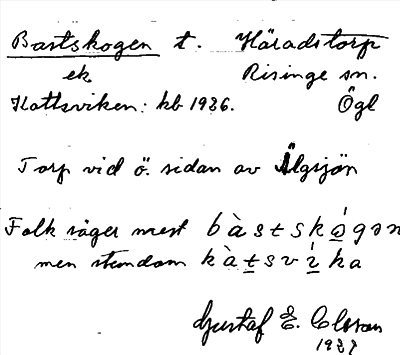 Bastskogen t. Häradstorp
ek Risinge sn.
Kattsviken: kb 1926. Ögl
Torp vid ö. sidan av Älgsjön
Folk säger mest bàstskógən
men stundom kàtsvíka
Gustaf E. Olsson